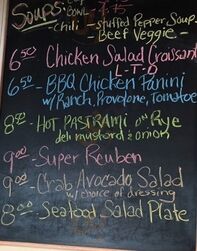 SOUPS:
Bowl -
- Chili - Stuffed Pepper Soup -
- Beef Veggie -
6 50 - Chicken Salad Croissant
L-T-O
6 50 - BBQ Chicken Panini
w/Ranch, Provolone, Tomatoe
8 00 - HOT PASTRAMI on Rye
deli mustard & onion
9 00 - Super Reuben
9 00 - Crab Avocado Salad
w/choice of dressing
8 00 - Seafood Salad Plate